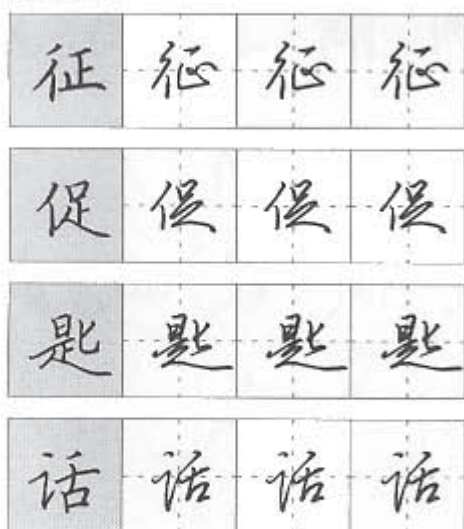 征征征征
促促促促
匙匙匙匙
话话话话